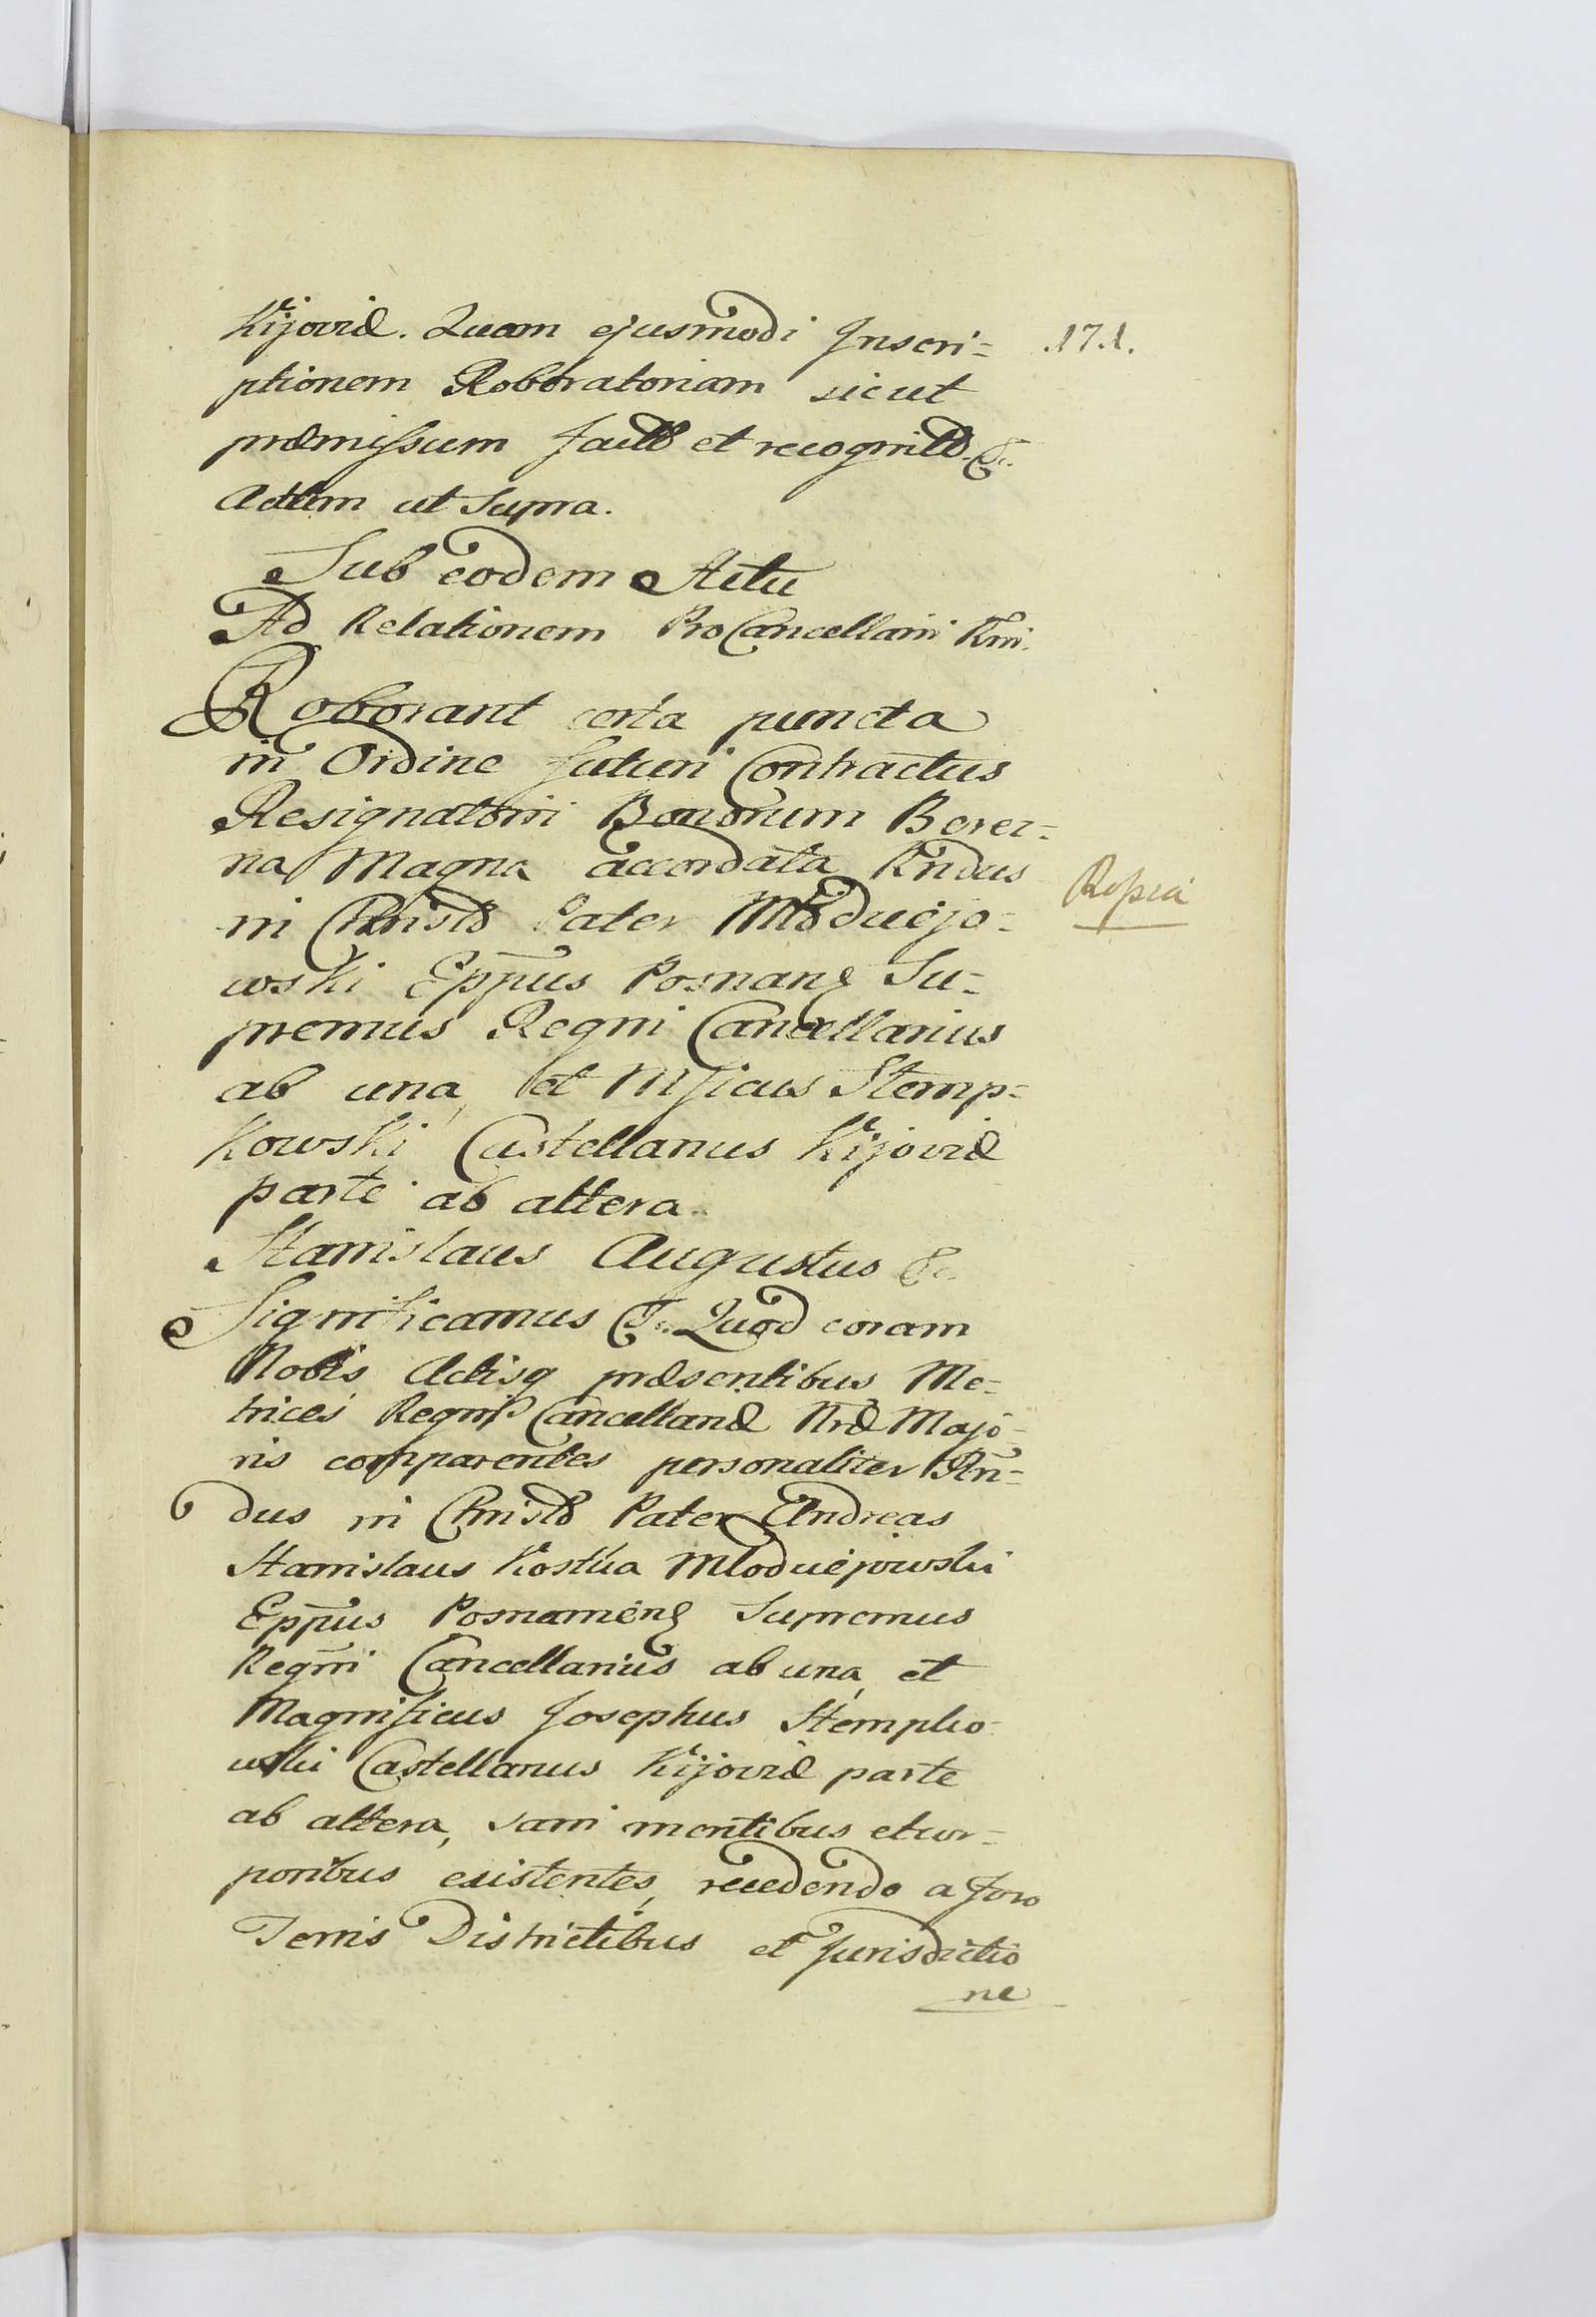 Kijoviæ. Quam ejusmodi Inscri= .171.
ptionem Roboratoriam sicut
præmissum facto et recognito. &c.
Actum ut supra.
Sub eodem Actu
Ad Relationem ProCancellarii Rni.
Roborant certa puncta
in Ordine futuri Contractus
Resignatorii Bonorum Berez=
na Magna accordata Rndus
in Christo Pater Młodziejo=
wski Eppus Posnan: Su=
premus Regni Cancellarius
ab una, et Mficus Stemp=
kowski Castellanus Kijoviæ
parte ab altera.
Stanislaus Augustus &c.
Significamus &c. Quod coram
Nobis Actisq præsentibus Me=
trices Regni Cancellariæ Nræ Majo=
ris comparentes personaliter Rn=
dus in Christo Pater Andreas
Stanislaus Kostka Młodziejowski
Eppus Posnanien: Supremus
Regni Cancellarius ab una, et
Magnificus Josephus Stempko=
wski Castellanus Kijoviæ parte
ab altera, sani mentibus et cor=
poribus existentes, recedendo a foro
Terris Districtibus et Jurisdictio
ne